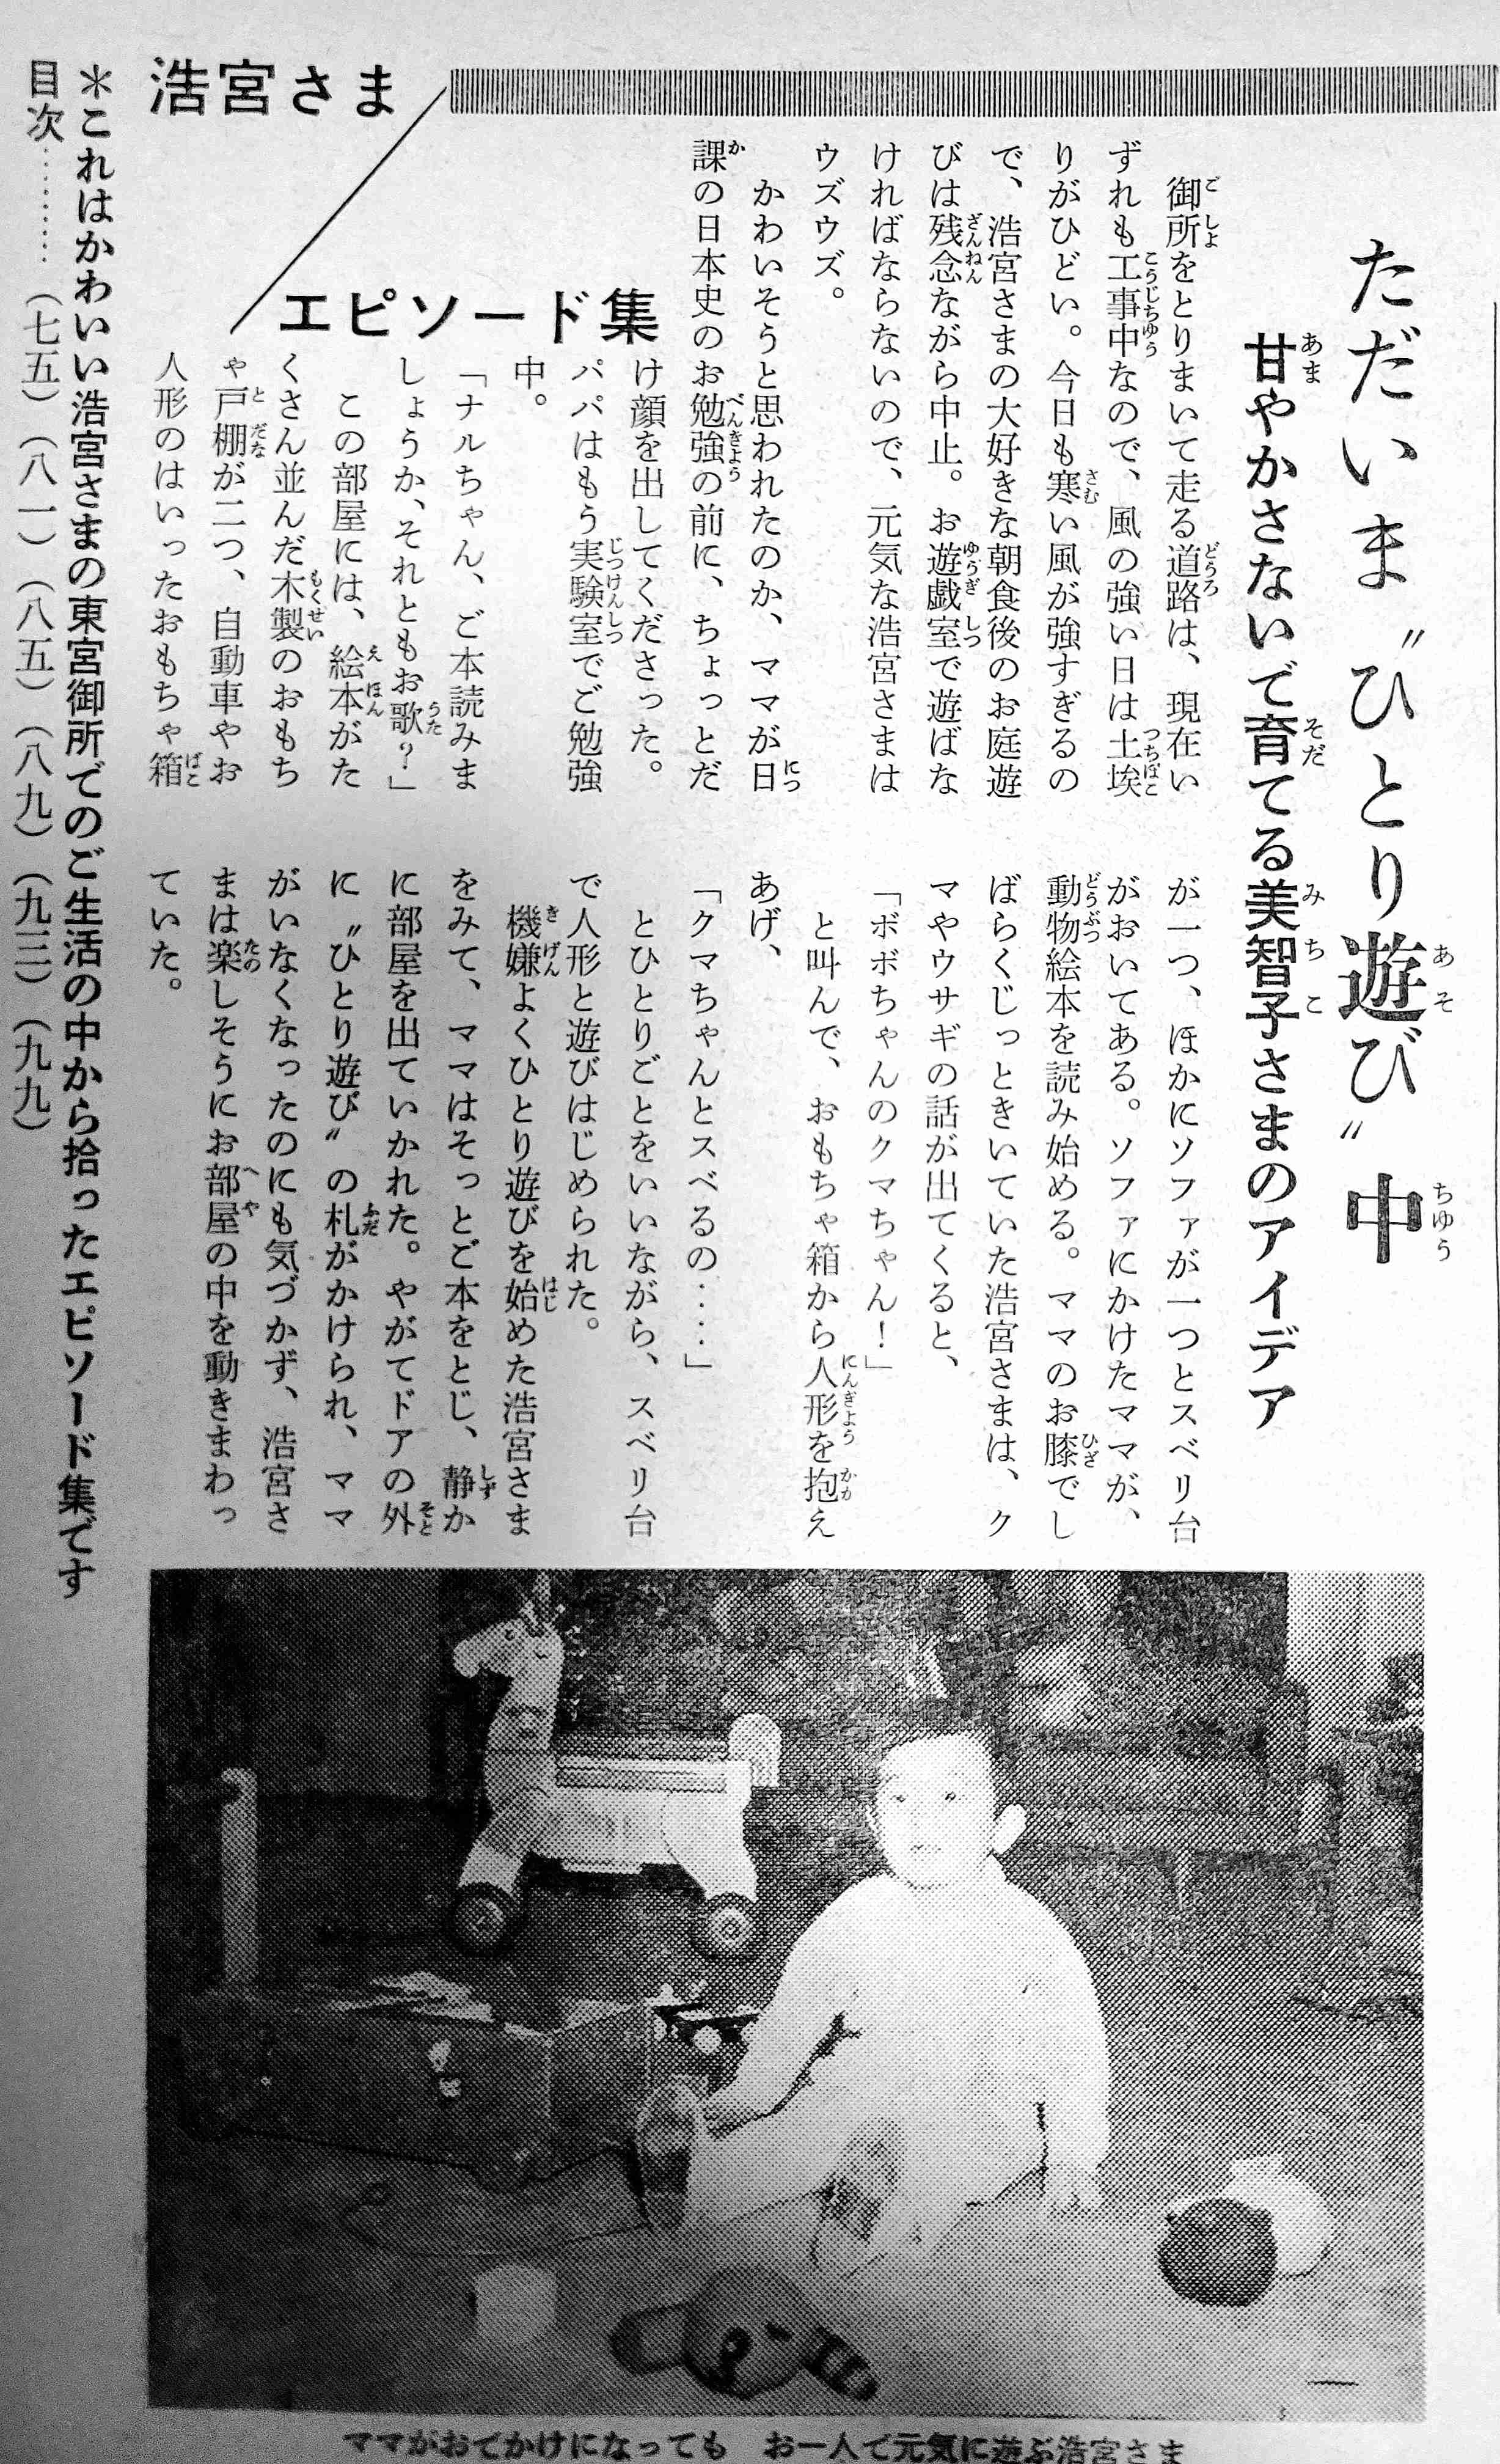 ただいま〝ひとり遊び〟中
甘やかさないで育てる美智子さまのアイデア
浩宮さま
エピソード集
御所をとりまいて走る道路は、現在い
ずれも工事中なので、風の強い日は土埃
りがひどい。今日も寒い風が強すぎるの
で、浩宮さまの大好きな朝食後のお庭遊
びは残念ながら中止。お遊戯室で遊ばな
ければならないので、元気な浩宮さまは
ウズウズ。
かわいそうと思われたのか、ママが日
課の日本史のお勉強の前に、ちょっとだ
け顔を出してくださった。
パパはもう実験室でご勉強
中。
「ナルちゃん、ご本読みま
しょうか、それともお歌？」
この部屋には、絵本がた
くさん並んだ木製のおもち
ゃ戸棚が二つ、自動車やお
人形のはいったおもちゃ箱
が一つ、ほかにソファが一つとスベリ台
がおいてある。ソファにかけたママが、
動物絵本を読み始める。ママのお膝でし
ばらくじっときいていた浩宮さまは、ク
マやウサギの話が出てくると、
「ボボちゃんのクマちゃん！」
と叫んで、おもちゃ箱から人形を抱え
あげ、
「クマちゃんとスベるの‥‥」
とひとりごとをいいながら、スベリ台
で人形と遊びはじめられた。
機嫌よくひとり遊びを始めた浩宮さま
をみて、ママはそっとご本をとじ、静か
に部屋を出ていかれた。やがてドアの外
に〝ひとり遊び〟の札がかけられ、ママ
がいなくなったのにも気づかず、浩宮さ
まは楽しそうにお部屋の中を動きまわっ
ていた。
＊これはかわいい浩宮さまの東宮御所でのご生活の中から拾ったエピソード集です
目次………（七五）（八一）（八五）（八九）（九三）（九九）
ママがおでかけになっても　お一人で元気に遊ぶ浩宮さま